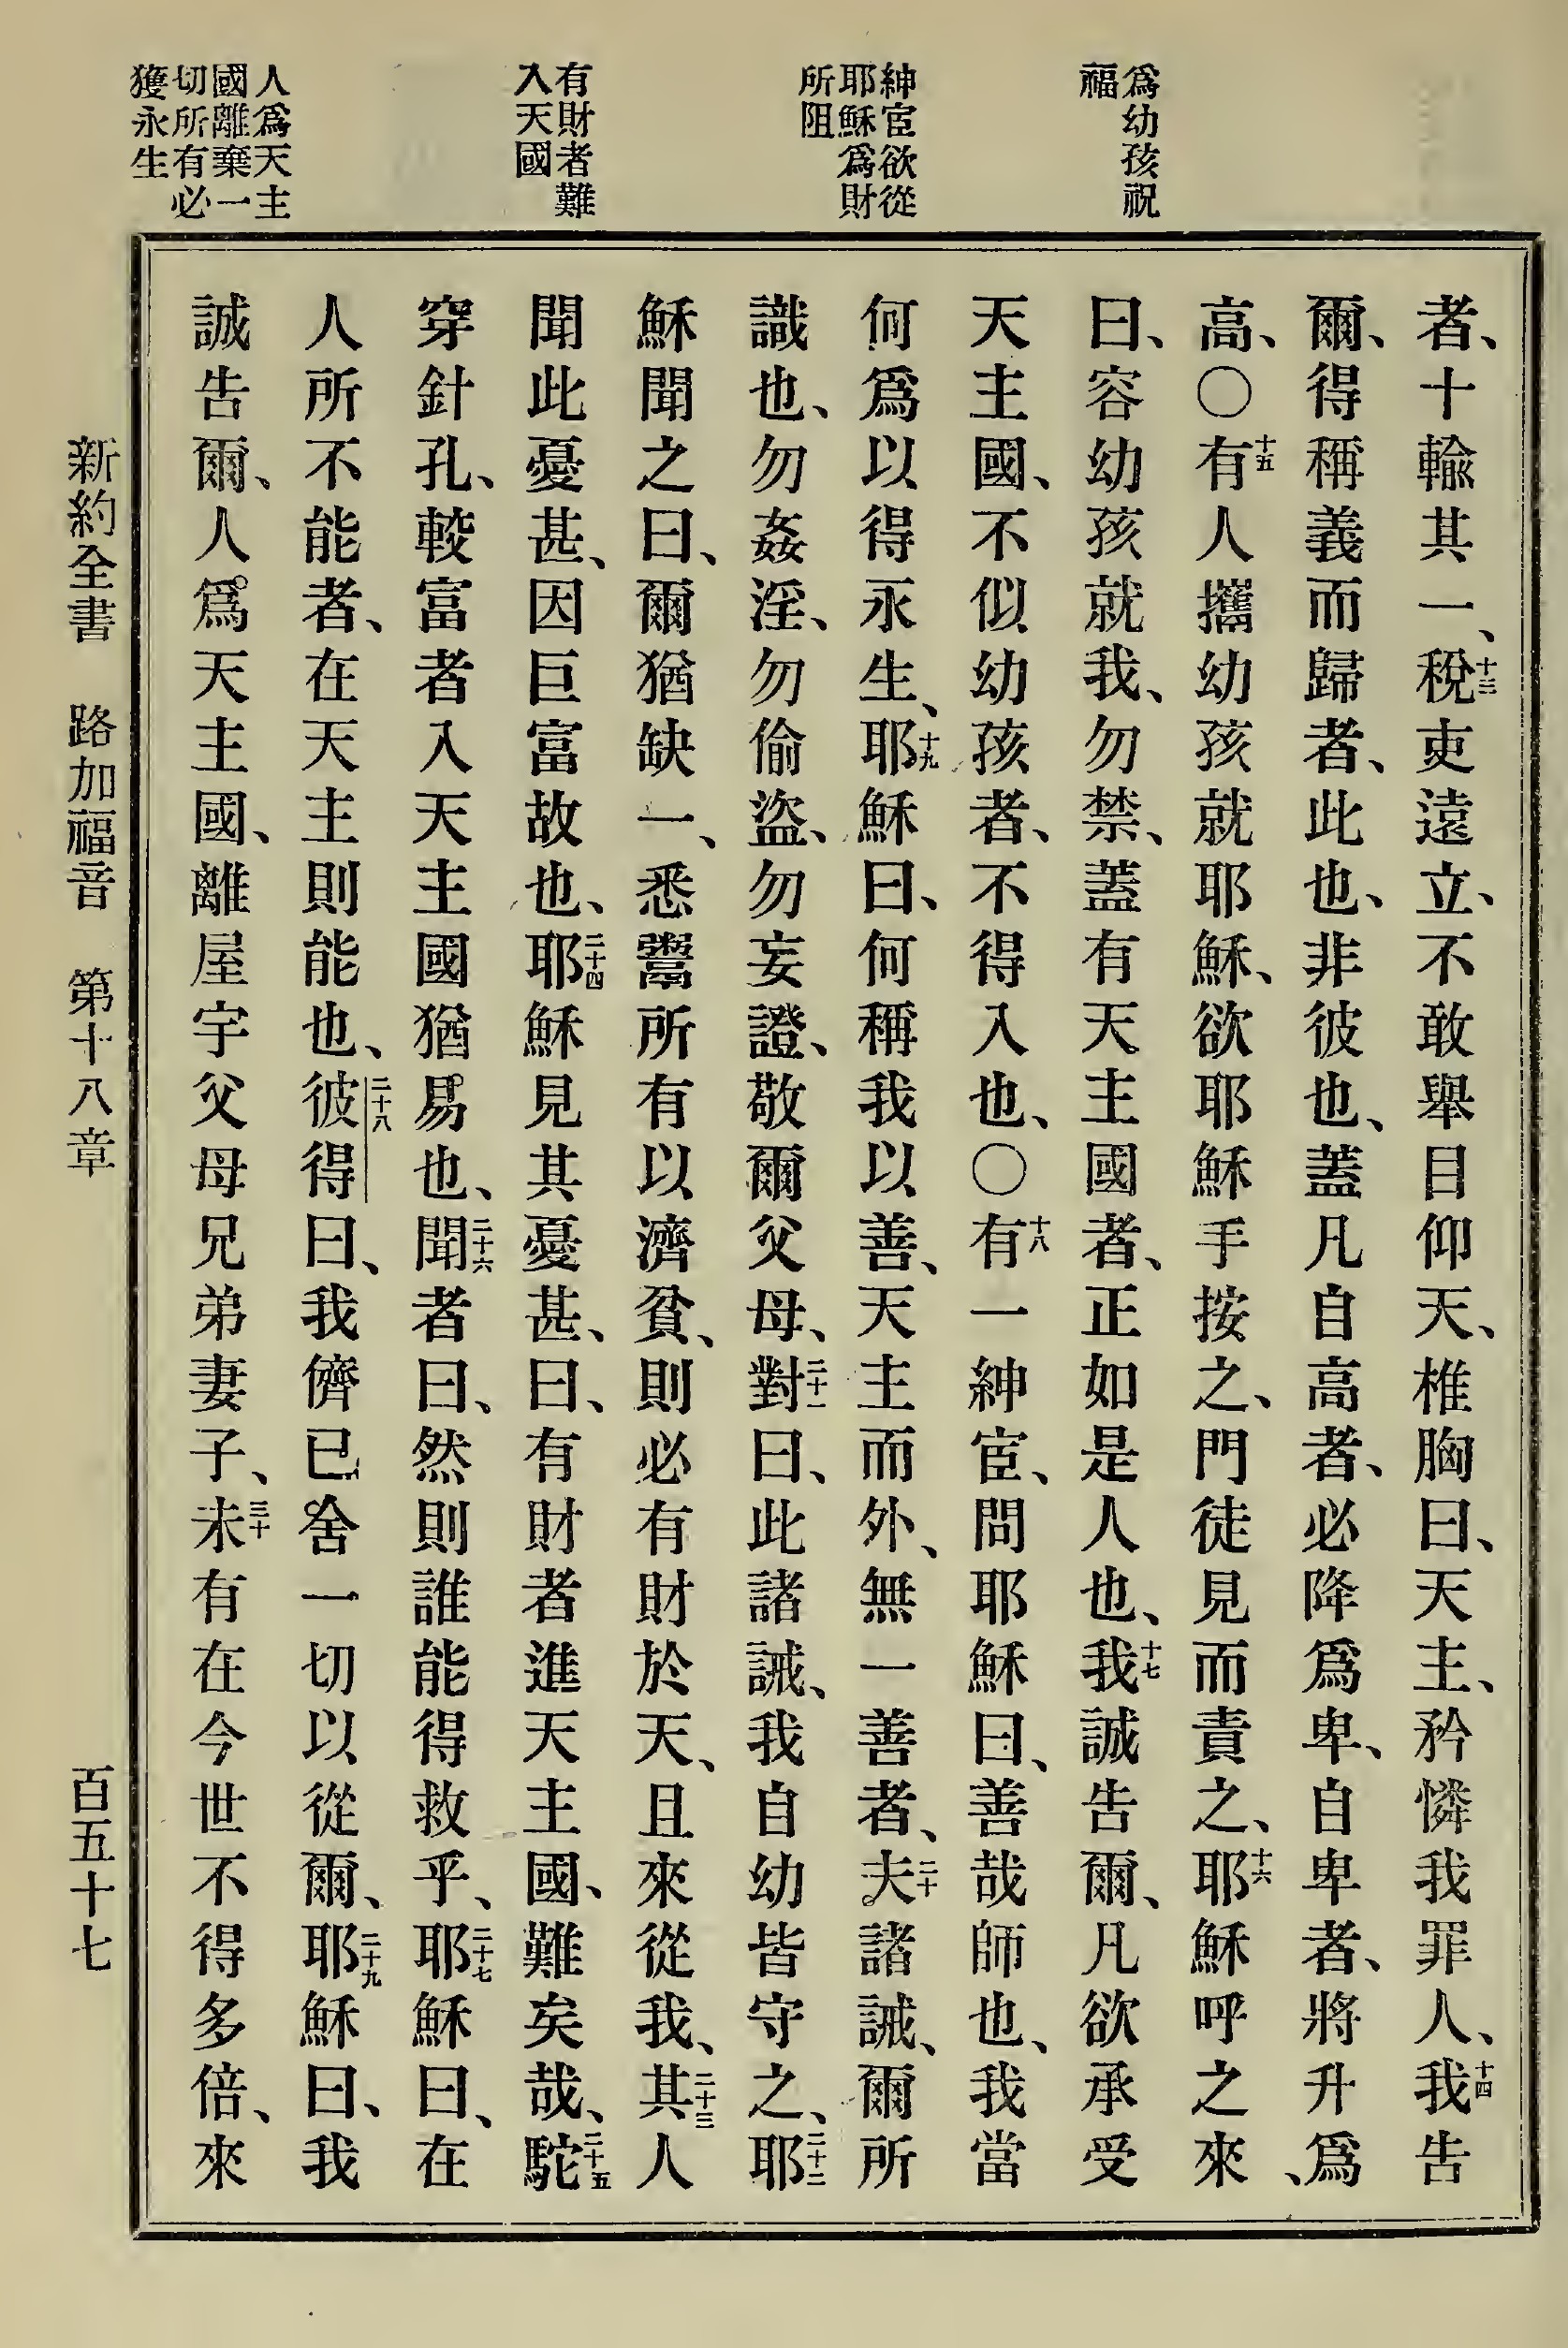 爲幼孩祝
福
紳宦欲從
耶穌爲財
所阻
有財者難
入天國
人爲天主
國離棄一
切所有必
獲永生
者、十輸其一、十三稅吏遠立、不敢舉目仰天、椎胸曰、天主、矜憐我罪人、十四我告
爾、得稱義而歸者、此也、非彼也、蓋凡自高者、必降爲卑、自卑者、將升爲、
高、〇十五有人攜幼孩就耶穌、欲耶穌手按之、門徒見而責之、十六耶穌呼之來
曰、容幼孩就我、勿禁、蓋有天主國者、正如是人也、十七我誠告爾、凡欲承受
天主國、不似幼孩者、不得入也、〇十八有一紳宦、問耶穌曰、善哉師也、我當
何爲以得永生、十九耶穌曰、何稱我以善、天主而外、無一善者、二十夫諸誡、爾所
識也、勿姦淫、勿偷盜、勿妄證、敬爾父母、二十一對曰、此諸誡、我自幼皆守之、二十二耶
穌聞之曰、爾猶缺一、悉鬻所有以濟貧、則必有財於天、且來從我、二十三其人
聞此憂甚、因巨富故也、二十四耶穌見其憂甚、曰、有財者進天主國、難矣哉、二十五駝
穿針孔、較富者入天主國猶易也、二十六聞者曰、然則誰能得救乎、二十七耶穌曰、在
人所不能者、在天主則能也、二十八彼得曰、我儕已舍一切以從爾、二十九耶穌曰、我
誠告爾、人爲天主國、離屋宇父母兄弟妻子、三十未有在今世不得多倍、來
新約全書 路加福音 第十八章 百五十七